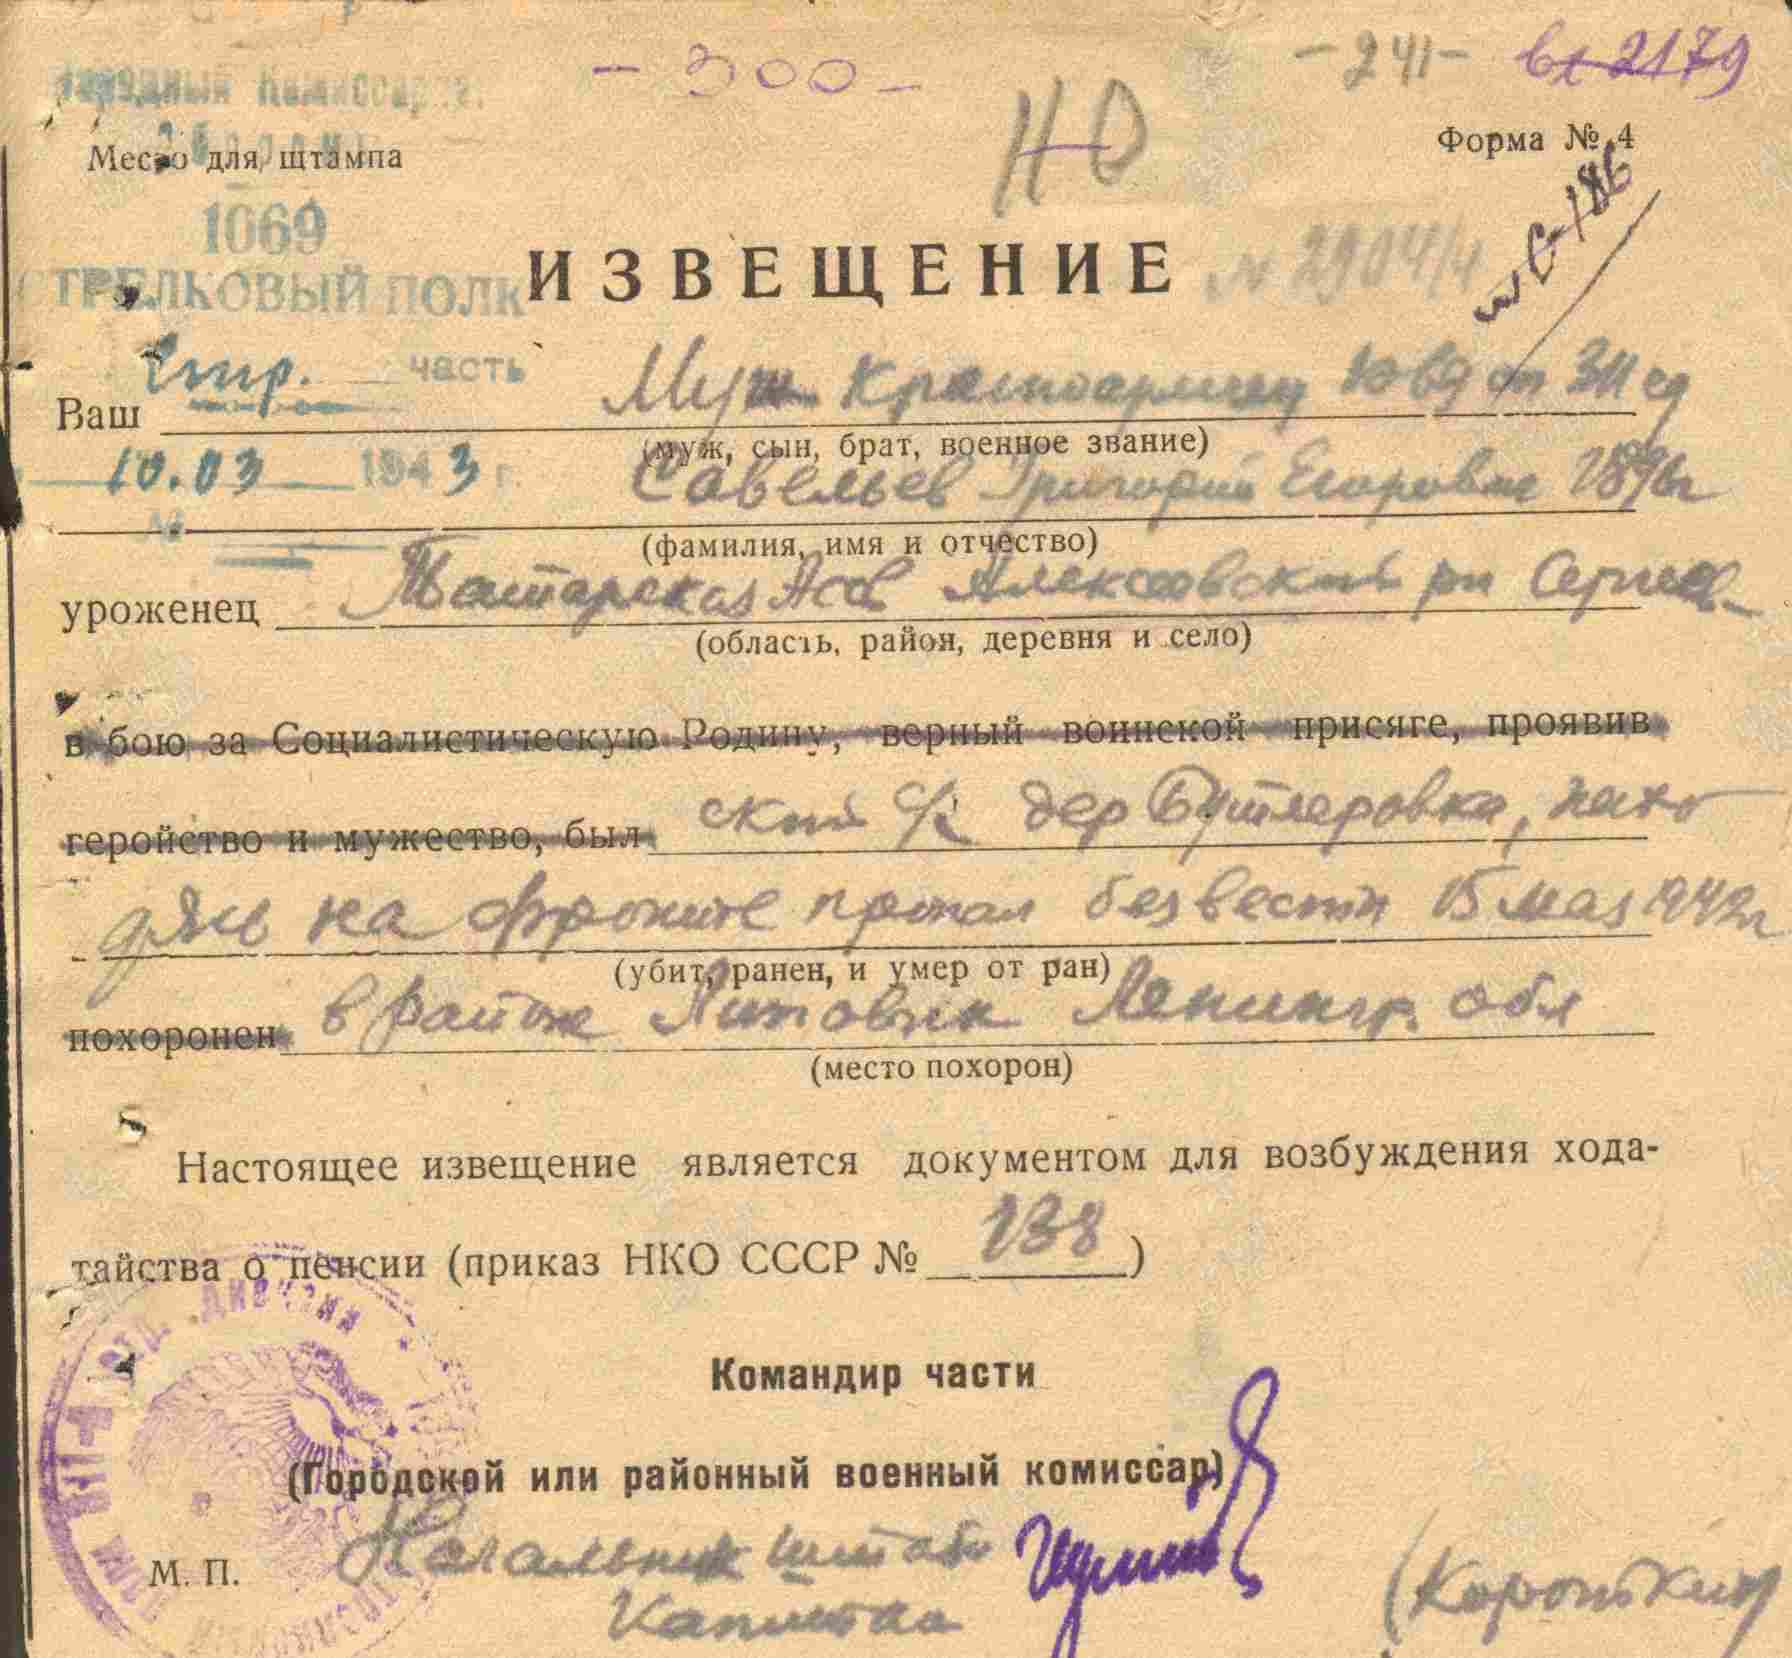 - 300 -
- 241 - вх 2179
Народный Комиссар
Место для штампа
НО
Форма № 4
1069
СТРЕЛКОВЫЙ ПОЛК
ИЗВЕЩЕНИЕ
№ 2904/4
часть
Ваш Муж Красноармеец 1069 сп 311 сд
(муж, сын, брат, военное звание)
10.03 1943 г.
Савельев Григорий Егорович 1896 г
(фамилия, имя и отчество)
№
уроженец Татарская Асср Алексеевский рн Сергеев-
(область, район, деревня и село)
в бою за Социалистическую Родину, верный воинской присяге, проявив
геройство и мужество, был ский с/с дер Бутлеровка, нахо
дясь на фронте пропал без вести 15 мая 1942 г
(убит, ранен, и умер от ран)
похоронен в районе Липовик Ленингр. обл
(место похорон)
Настоящее извещение является документом для возбуждения хода-
тайства о пенсии (приказ НКО СССР № 138)
Командир части
(Городской или районный военный комиссар)
М. П.
Начальник штаба
Капитан
(Короткий